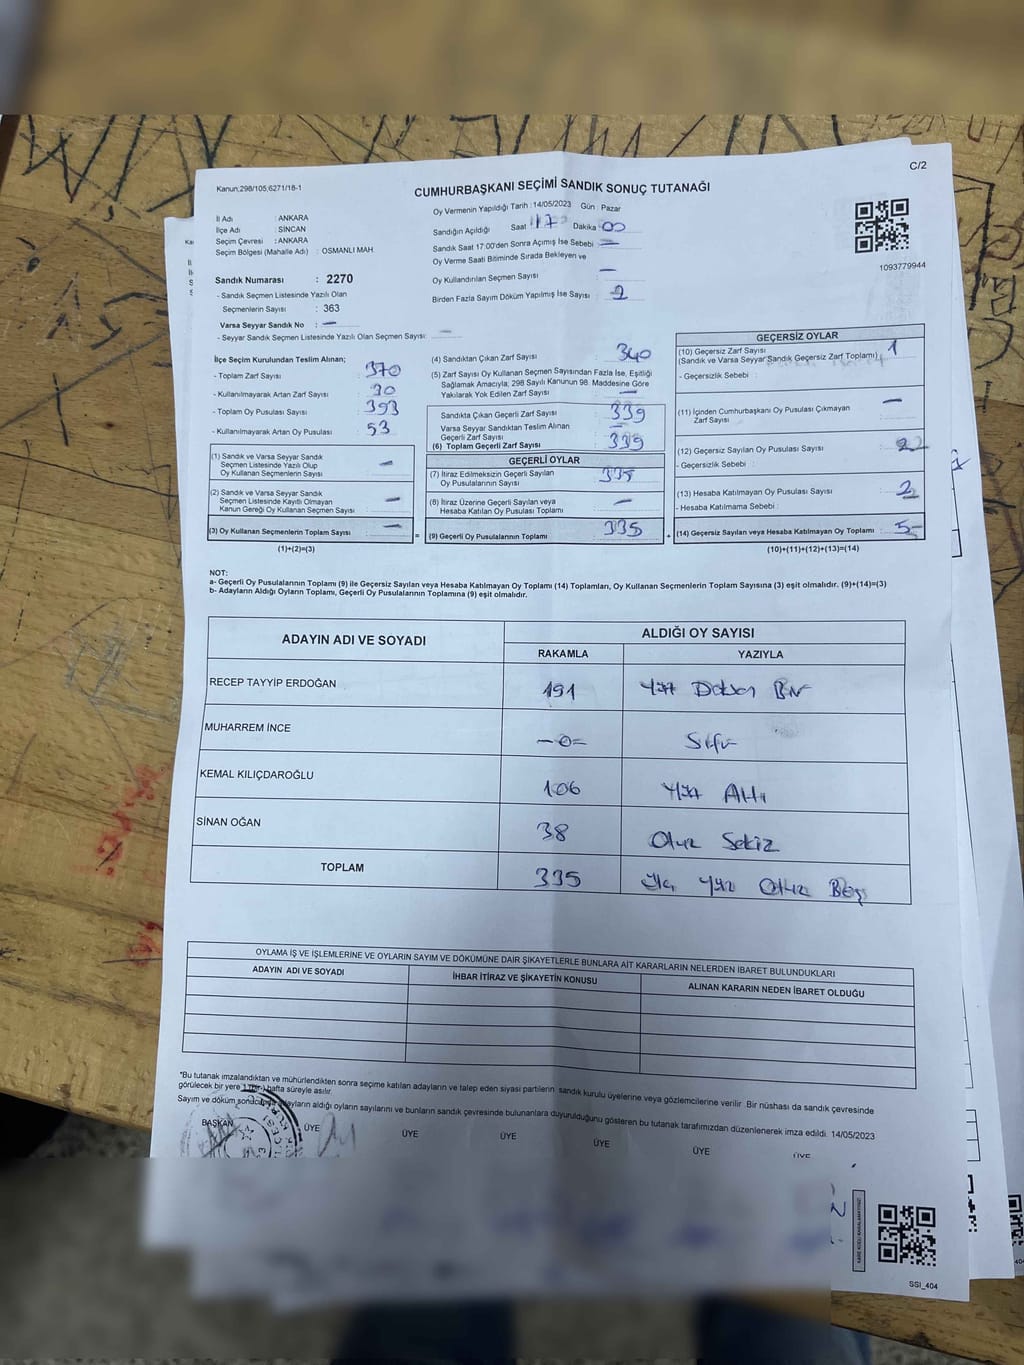 C/2
Kanun;298/105,6271/18-1
CUMHURBAŞKANI SEÇİMİ SANDIK SONUÇ TUTANAĞI
İl Adı : ANKARA
İlçe Adı : SİNCAN
Seçim Çevresi : ANKARA
Seçim Bölgesi (Mahalle Adı) : OSMANLI MAH
Sandık Numarası : 2270
- Sandık Seçmen Listesinde Yazılı Olan
Seçmenlerin Sayısı : 363
Varsa Seyyar Sandık No : —
- Seyyar Sandık Seçmen Listesinde Yazılı Olan Seçmen Sayısı: —
Oy Vermenin Yapıldığı Tarih : 14/05/2023 Gün : Pazar
Sandığın Açıldığı Saat : 17 Dakika : 00
Sandık Saat 17:00'den Sonra Açımış İse Sebebi : —
Oy Verme Saati Bitiminde Sırada Bekleyen ve
Oy Kullandırılan Seçmen Sayısı —
Birden Fazla Sayım Döküm Yapılmış İse Sayısı : 2
1093779944
İlçe Seçim Kurulundan Teslim Alınan;
- Toplam Zarf Sayısı : 370
- Kullanılmayarak Artan Zarf Sayısı : 30
- Toplam Oy Pusulası Sayısı : 393
- Kullanılmayarak Artan Oy Pusulası : 53
(1) Sandık ve Varsa Seyyar Sandık
Seçmen Listesinde Yazılı Olup
Oy Kullanan Seçmenlerin Sayısı : —
(2) Sandık ve Varsa Seyyar Sandık
Seçmen Listesinde Kayıtlı Olmayan
Kanun Gereği Oy Kullanan Seçmen Sayısı : —
(3) Oy Kullanan Seçmenlerin Toplam Sayısı : —
(1)+(2)=(3)
(4) Sandıktan Çıkan Zarf Sayısı : 340
(5) Zarf Sayısı Oy Kullanan Seçmen Sayısından Fazla İse, Eşitliği
Sağlamak Amacıyla; 298 Sayılı Kanunun 98. Maddesine Göre
Yakılarak Yok Edilen Zarf Sayısı : —
Sandıkta Çıkan Geçerli Zarf Sayısı : 339
Varsa Seyyar Sandıktan Teslim Alınan
Geçerli Zarf Sayısı : —
(6) Toplam Geçerli Zarf Sayısı : 339
GEÇERLİ OYLAR
(7) İtiraz Edilmeksizin Geçerli Sayılan
Oy Pusulalarının Sayısı : 335
(8) İtiraz Üzerine Geçerli Sayılan veya
Hesaba Katılan Oy Pusulası Toplamı : —
= (9) Geçerli Oy Pusulalarının Toplamı : 335
GEÇERSİZ OYLAR
(10) Geçersiz Zarf Sayısı
(Sandık ve Varsa Seyyar Sandık Geçersiz Zarf Toplamı) : 1
- Geçersizlik Sebebi :
(11) İçinden Cumhurbaşkanı Oy Pusulası Çıkmayan
Zarf Sayısı : —
(12) Geçersiz Sayılan Oy Pusulası Sayısı : 2
- Geçersizlik Sebebi :
(13) Hesaba Katılmayan Oy Pusulası Sayısı : 2
- Hesaba Katılmama Sebebi :
+ (14) Geçersiz Sayılan veya Hesaba Katılmayan Oy Toplamı : 5
(10)+(11)+(12)+(13)=(14)
NOT:
a- Geçerli Oy Pusulalarının Toplamı (9) ile Geçersiz Sayılan veya Hesaba Katılmayan Oy Toplamı (14) Toplamları, Oy Kullanan Seçmenlerin Toplam Sayısına (3) eşit olmalıdır. (9)+(14)=(3)
b- Adayların Aldığı Oyların Toplamı, Geçerli Oy Pusulalarının Toplamına (9) eşit olmalıdır.
ADAYIN ADI VE SOYADI
ALDIĞI OY SAYISI
RAKAMLA YAZIYLA
RECEP TAYYİP ERDOĞAN 191 Yüz Doksan Bir
MUHARREM İNCE —0— Sıfır
KEMAL KILIÇDAROĞLU 106 Yüz Altı
SİNAN OĞAN 38 Otuz Sekiz
TOPLAM 335 Üç Yüz Otuz Beş
OYLAMA İŞ VE İŞLEMLERİNE VE OYLARIN SAYIM VE DÖKÜMÜNE DAİR ŞİKAYETLERLE BUNLARA AİT KARARLARIN NELERDEN İBARET BULUNDUKLARI
ADAYIN ADI VE SOYADI İHBAR İTİRAZ VE ŞİKAYETİN KONUSU ALINAN KARARIN NEDEN İBARET OLDUĞU
*Bu tutanak imzalandıktan ve mühürlendikten sonra seçime katılan adayların ve talep eden siyasi partilerin sandık kurulu üyelerine veya gözlemcilerine verilir. Bir nüshası da sandık çevresinde
görülecek bir yere hafta süreyle asılır.
Sayım ve döküm adayların aldığı oyların sayılarını ve bunların sandık çevresinde bulunanlara duyurulduğunu gösteren bu tutanak tarafımızdan düzenlenerek imza edildi. 14/05/2023
BAŞKAN ÜYE ÜYE ÜYE ÜYE ÜYE ÜYE
SSI_404